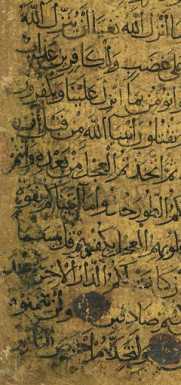 ما أنزل الله بغيا أن ينزل الله
على غضب وللكافرين عذاب
نؤمن بما أنزل علينا ويكفرون
تقتلون أنبياء الله من قبل إن
ثم اتخذتم العجل من بعده وأنتم
كم الطور خذوا ما آتيناكم بقوة
قلوبهم العجل بكفرهم قل بئسما
إن كانت لكم الدار الآخرة عند
صادقين ولن يتمنوه
ولتجدنهم أحرص الناس